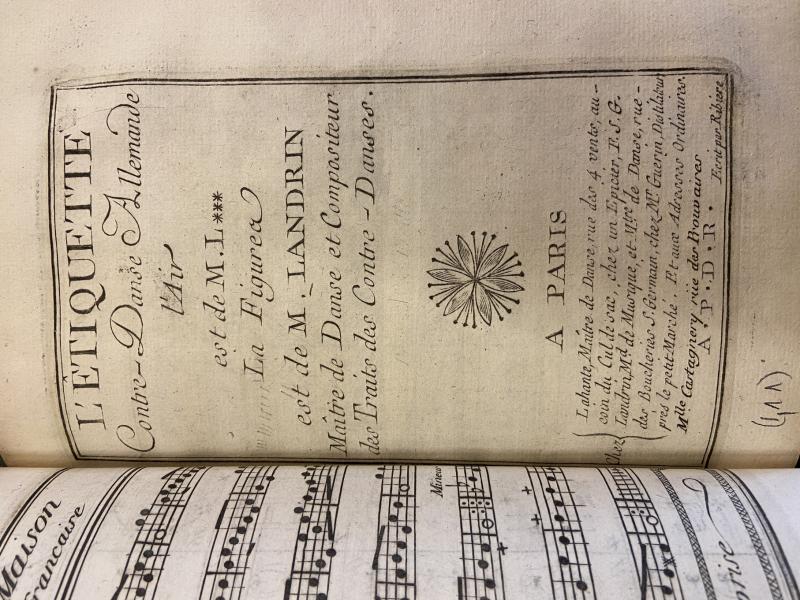 L'ÉTIQUETTE
Contre-Danse Allemande
l'Air
est de M. L***
La Figure
est de M. LANDRIN
Maître de Danse et Compositeur
des Traits des Contre-Danses.
A PARIS
Chez
Lahante, Maître de Danse, rue des 4 vents, au-
coin du Cul de sac, chez un Epicier, F. S. G.
Landrin, Md. de Musique, et Mtre. de Danse, rue-
des Boucheries St. Germain, chez Mr. Guerin, Distilateur
près le petit Marché. Et aux Adresses Ordinaires.
Mlle Castagnery rüe des Prouvaires
A. P. D. R.
Ecrit par Ribiere
Maison
francaise
Mineur